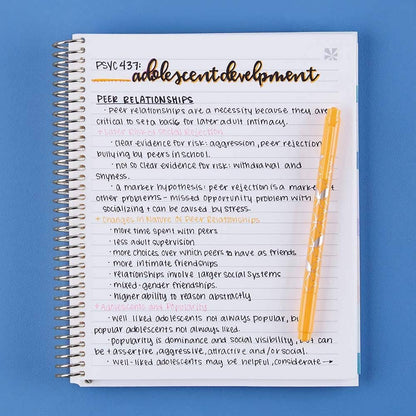 PSYC 437:
adolescent develpment
PEER RELATIONSHIPS
· peer relationships are a necessity because they are
critical to set a basis for later adult intimacy.
+ Later Risk of Social Rejection
· clear evidence for risk: aggression, peer rejection
bullying by peers in school.
· not so clear evidence for risk: withdrawal and
shyness.
· a marker hypothesis: peer rejection is a marker
other problems - missed opportunity problem with
socializing + can be caused by stress.
+ Changes in Nature of Peer Relationships
· more time spent with peers
· less adult supervision
· more choices over which peers to have as friends
· more intimate friendships
· relationships involve larger social systems
· mixed-gender friendships.
· higher ability to reason abstractly
+ Adolescents and Popularity
· well liked adolescents not always popular,
popular adolescents not always liked.
· popularity is dominance and social visibility, but can
be + assertive, aggressive, attractive and/or social.
· well-liked adolescents may be helpful, considerate →